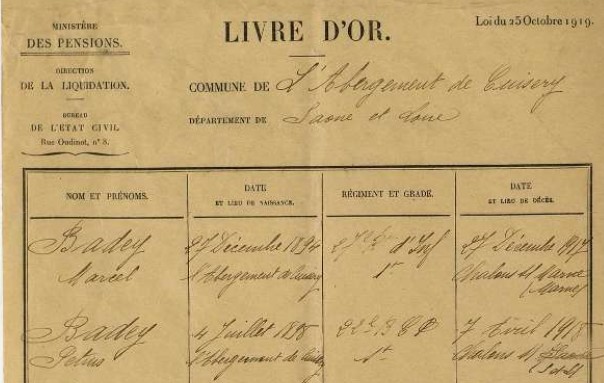 MINISTÈRE
DES PENSIONS.
DIRECTION
DE LA LIQUIDATION.
BUREAU
DE L'ETAT CIVIL.
Rue Oudinot, n° 8.
LIVRE D'OR.
Loi du 25 Octobre 1919.
COMMUNE DE L'Abergement de Cuisery
DÉPARTEMENT DE Saone et Loire
NOM ET PRÉNOMS.
DATE
ET LIEU DE NAISSANCE.
RÉGIMENT ET GRADE.
DATE
ET LIEU DE DÉCÈS.
Badey 27 Décembre 1894 d'Inf 27 Décembre 1917
Marcel l'Abergement de Cuisery Chalons s/ Marne
(Marne)
Badey 4 Juillet 1898 7 Avril 1918
Petrus l'Abergement de Cuisery Chalons s/ Saone
(S et L)